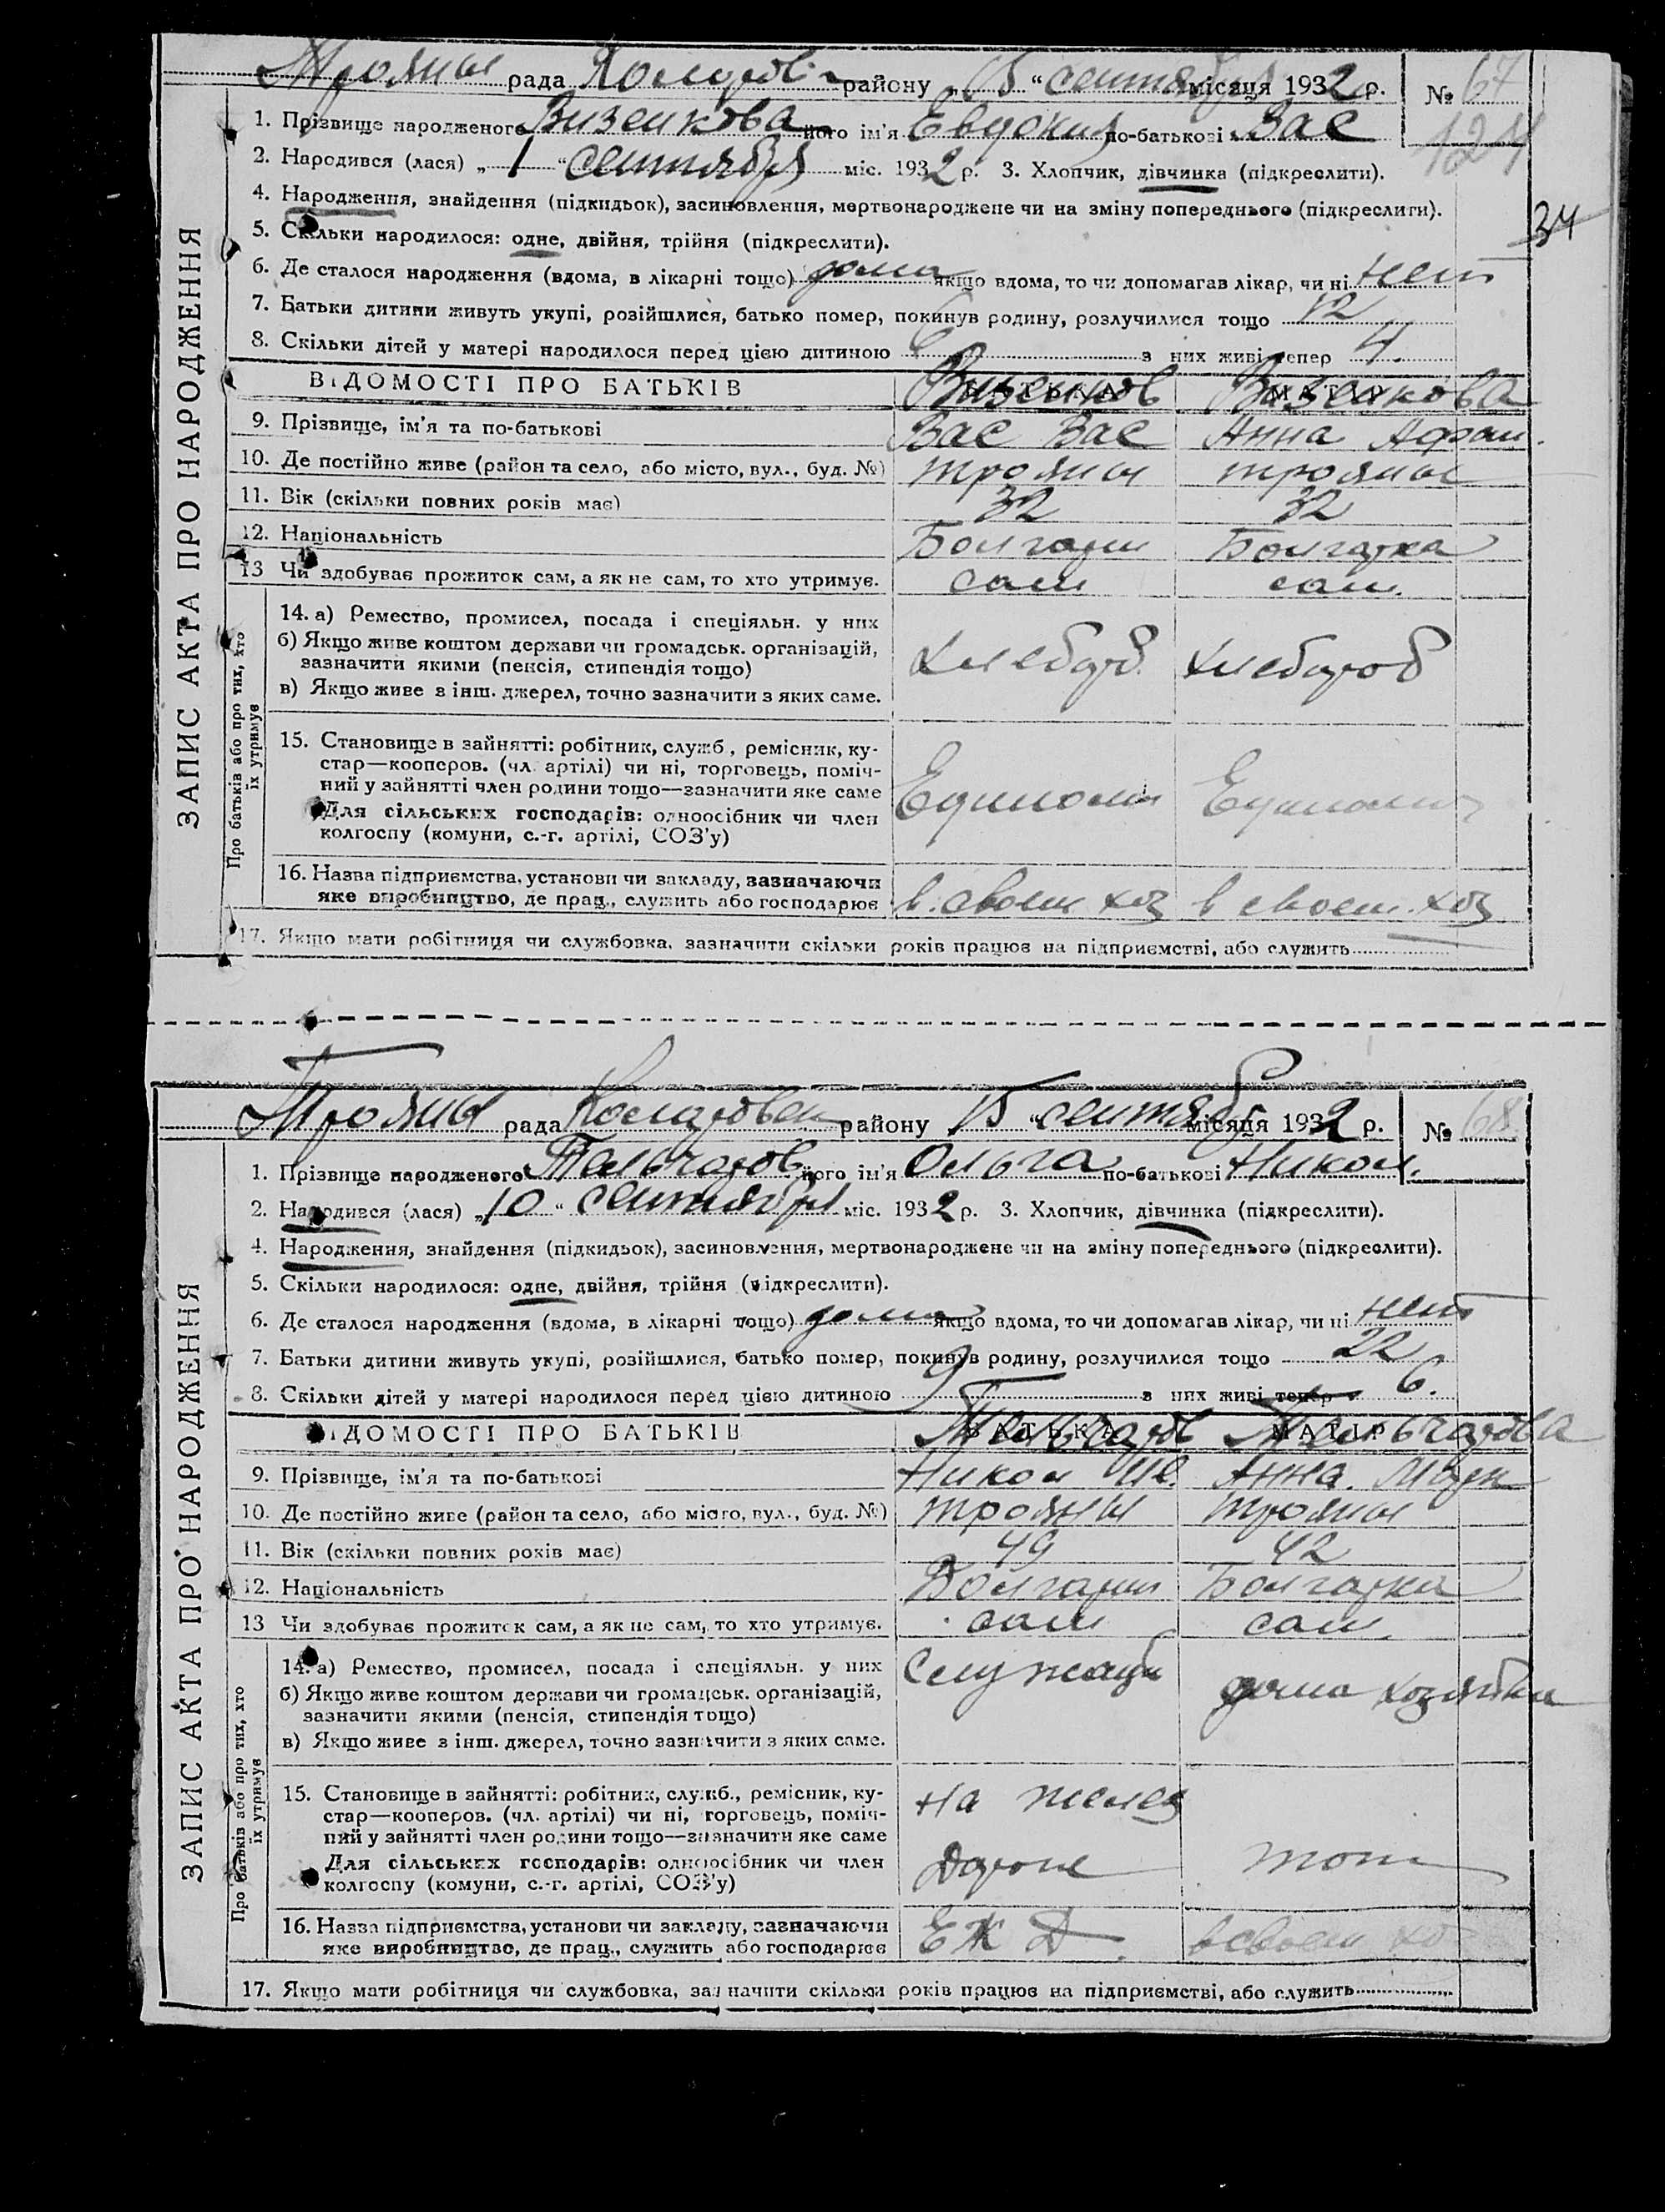 Трояны рада Коларов. району „15“ сентября місяця 1932 р. № 67
124
34
ЗАПИС АКТА ПРО НАРОДЖЕННЯ
1. Прізвище народженого Визенкова його ім'я Евдокия по-батькові Вас
2. Народився (лася) „1“ сентября міс. 1932 р. 3. Хлопчик, дівчинка (підкреслити).
4. Народження, знайдення (підкидьок), засиновлення, мертвонароджене чи на зміну попереднього (підкреслити).
5. Скільки народилося: одне, двійня, трійня (підкреслити).
6. Де сталося народження (вдома, в лікарні тощо) дома якщо вдома, то чи допомагав лікар, чи ні нет
7. Батьки дитини живуть укупі, розійшлися, батько помер, покинув родину, розлучилися тощо 12
8. Скільки дітей у матері народилося перед цією дитиною з них живі тепер 4.
ВІДОМОСТІ ПРО БАТЬКІВ БАТЬКА МАТІР
Визенков Визенкова
9. Прізвище, ім'я та по-батькові Вас Вас Анна Афан.
10. Де постійно живе (район та село, або місто, вул., буд. №) трояны трояны
11. Вік (скільки повних років має) 32 32
12. Національність Болгарин Болгарка
13 Чи здобуває прожиток сам, а як не сам, то хто утримує. сам сам.
Про батьків або про тих, хто їх утримує
14. а) Ремество, промисел, посада і спеціяльн. у них
б) Якщо живе коштом держави чи громадськ. організацій,
зазначити якими (пенсія, стипендія тощо) хлебороб. хлебороб
в) Якщо живе з інш. джерел, точно зазначити з яких саме.
15. Становище в зайнятті: робітник, служб., ремісник, ку-
стар—кооперов. (чл. артілі) чи ні, торговець, поміч-
ний у зайнятті член родини тощо—зазначити яке саме
Для сільських господарів: одноосібник чи член
колгоспу (комуни, с.-г. артілі, СОЗ'у)
16. Назва підприємства, установи чи закладу, зазначаючи
яке виробництво, де прац., служить або господарює в своем хоз в своем хоз
17. Якщо мати робітниця чи службовка, зазначити скільки років працює на підприємстві, або служить
Трояны рада Коларовск району „15“ сентября місяця 1932 р. № 68
ЗАПИС АКТА ПРО НАРОДЖЕННЯ
1. Прізвище народженого Тельчаров його ім'я Ольга по-батькові Никол.
2. Народився (лася) „10“ сентября міс. 1932 р. 3. Хлопчик, дівчинка (підкреслити).
4. Народження, знайдення (підкидьок), засиновлення, мертвонароджене чи на зміну попереднього (підкреслити).
5. Скільки народилося: одне, двійня, трійня (підкреслити).
6. Де сталося народження (вдома, в лікарні тощо) дома якщо вдома, то чи допомагав лікар, чи ні нет
7. Батьки дитини живуть укупі, розійшлися, батько помер, покинув родину, розлучилися тощо 22
8. Скільки дітей у матері народилося перед цією дитиною 9 з них живі тепер 6.
ВІДОМОСТІ ПРО БАТЬКІВ БАТЬКА МАТІР
Тельчаров Тельчарова
9. Прізвище, ім'я та по-батькові Никол Ив. Анна. Марк
10. Де постійно живе (район та село, або місто, вул., буд. №) трояны трояны
11. Вік (скільки повних років має) 49 42
12. Національність Болгарин Болгарка
13 Чи здобуває прожиток сам, а як не сам, то хто утримує. сам сам.
Про батьків або про тих, хто їх утримує
14. а) Ремество, промисел, посада і спеціяльн. у них
б) Якщо живе коштом держави чи громадськ. організацій, дома хозяйка
зазначити якими (пенсія, стипендія тощо)
в) Якщо живе з інш. джерел, точно зазначити з яких саме.
15. Становище в зайнятті: робітник, служб., ремісник, ку- на желез
стар—кооперов. (чл. артілі) чи ні, торговець, поміч-
ний у зайнятті член родини тощо—зазначити яке саме
Для сільських господарів: одноосібник чи член Дороге
колгоспу (комуни, с.-г. артілі, СОЗ'у)
16. Назва підприємства, установи чи закладу, зазначаючи
яке виробництво, де прац., служить або господарює Е Ж Д. в своем хоз
17. Якщо мати робітниця чи службовка, зазначити скільки років працює на підприємстві, або служить